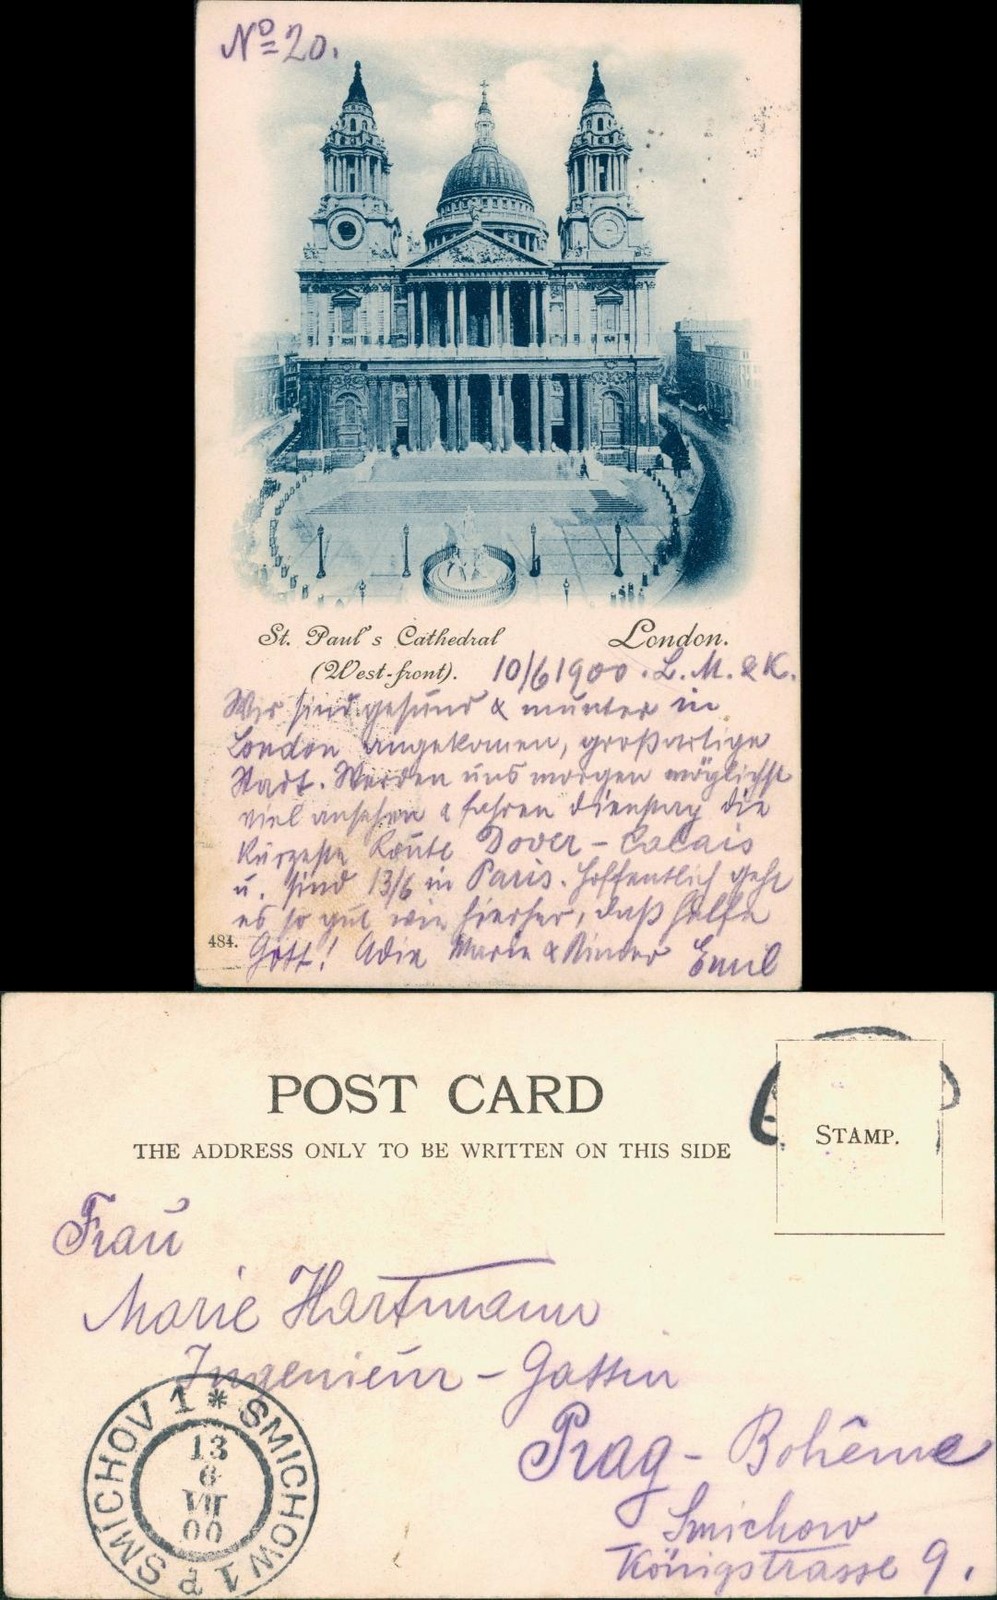 No 20.
St. Paul's Cathedral London.
(West-front). 10/6 1900. L. M. & K.
Wir sind gesund & munter in
London angekomen, großartige
Stadt. Werden uns morgen möglichst
viel ansehen & fahren Dienstag die
kürzeste Route Dover - Calais
u. sind 13/6 in Paris. Hoffentlich geht
es so gut wie hierher, daß helfe
484. Gott! Adie Marie & Kinder Emil
POST CARD
THE ADDRESS ONLY TO BE WRITTEN ON THIS SIDE
STAMP.
Frau
Marie Hartmann
Ingenieur - Gattin
Prag - Bohême
Smichow
Königstrasse 9.
SMICHOV 1 * SMICHOW 1
13
6
VII
00